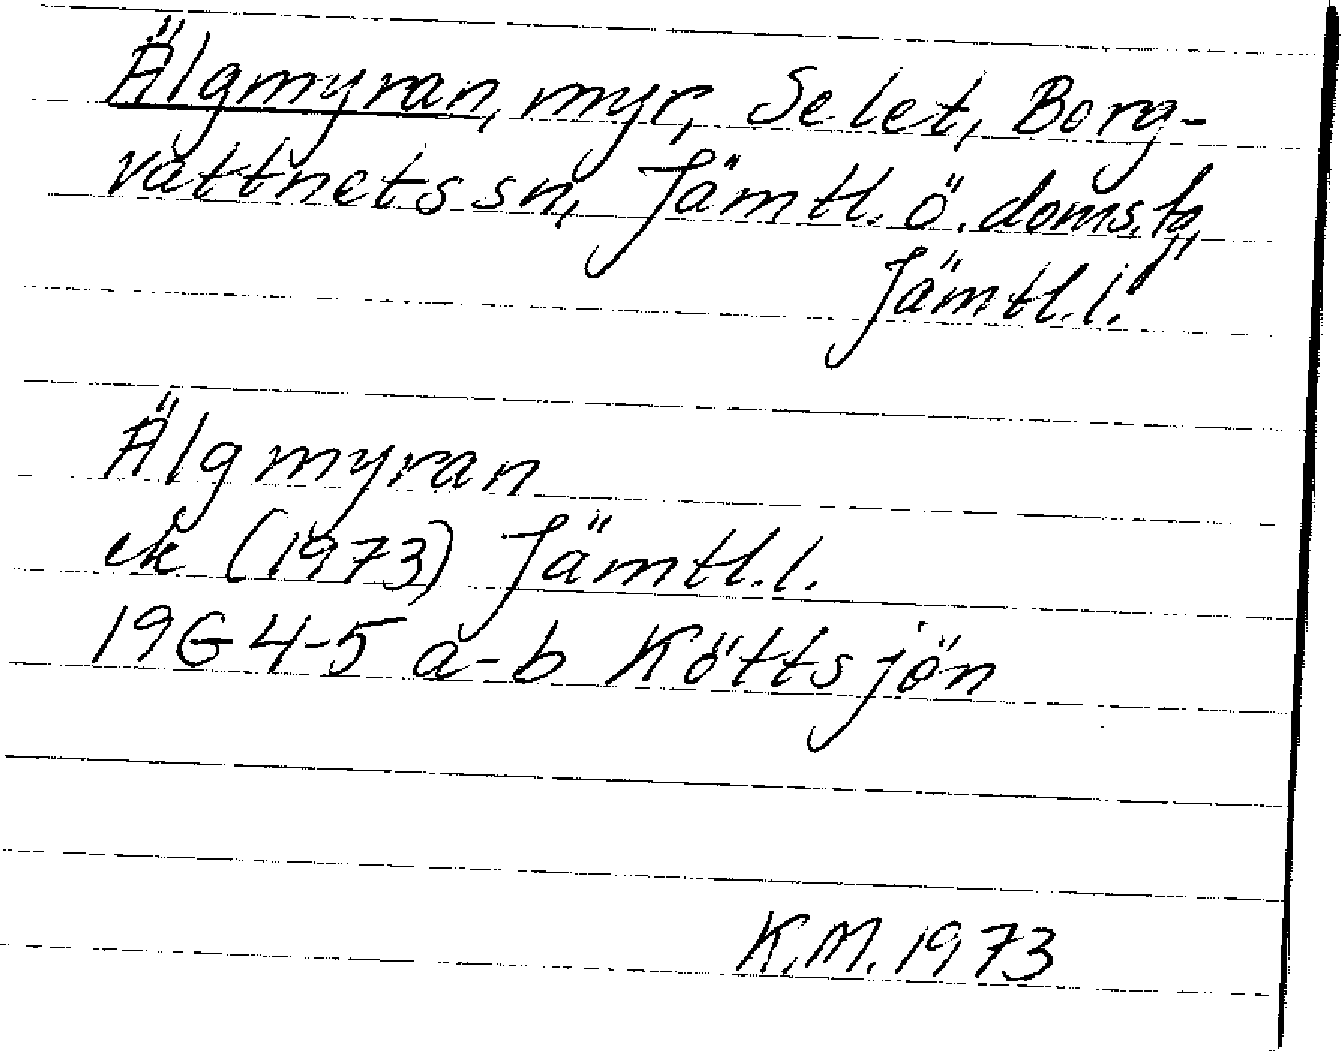 Älgmyran, myr, Selet, Borg-
vattnets sn, Jämtl. ö. doms.
Jämtl. l.
Älgmyran
ek (1973) Jämtl. l.
19G 4-5 a-b Köttsjön
K.M. 1973